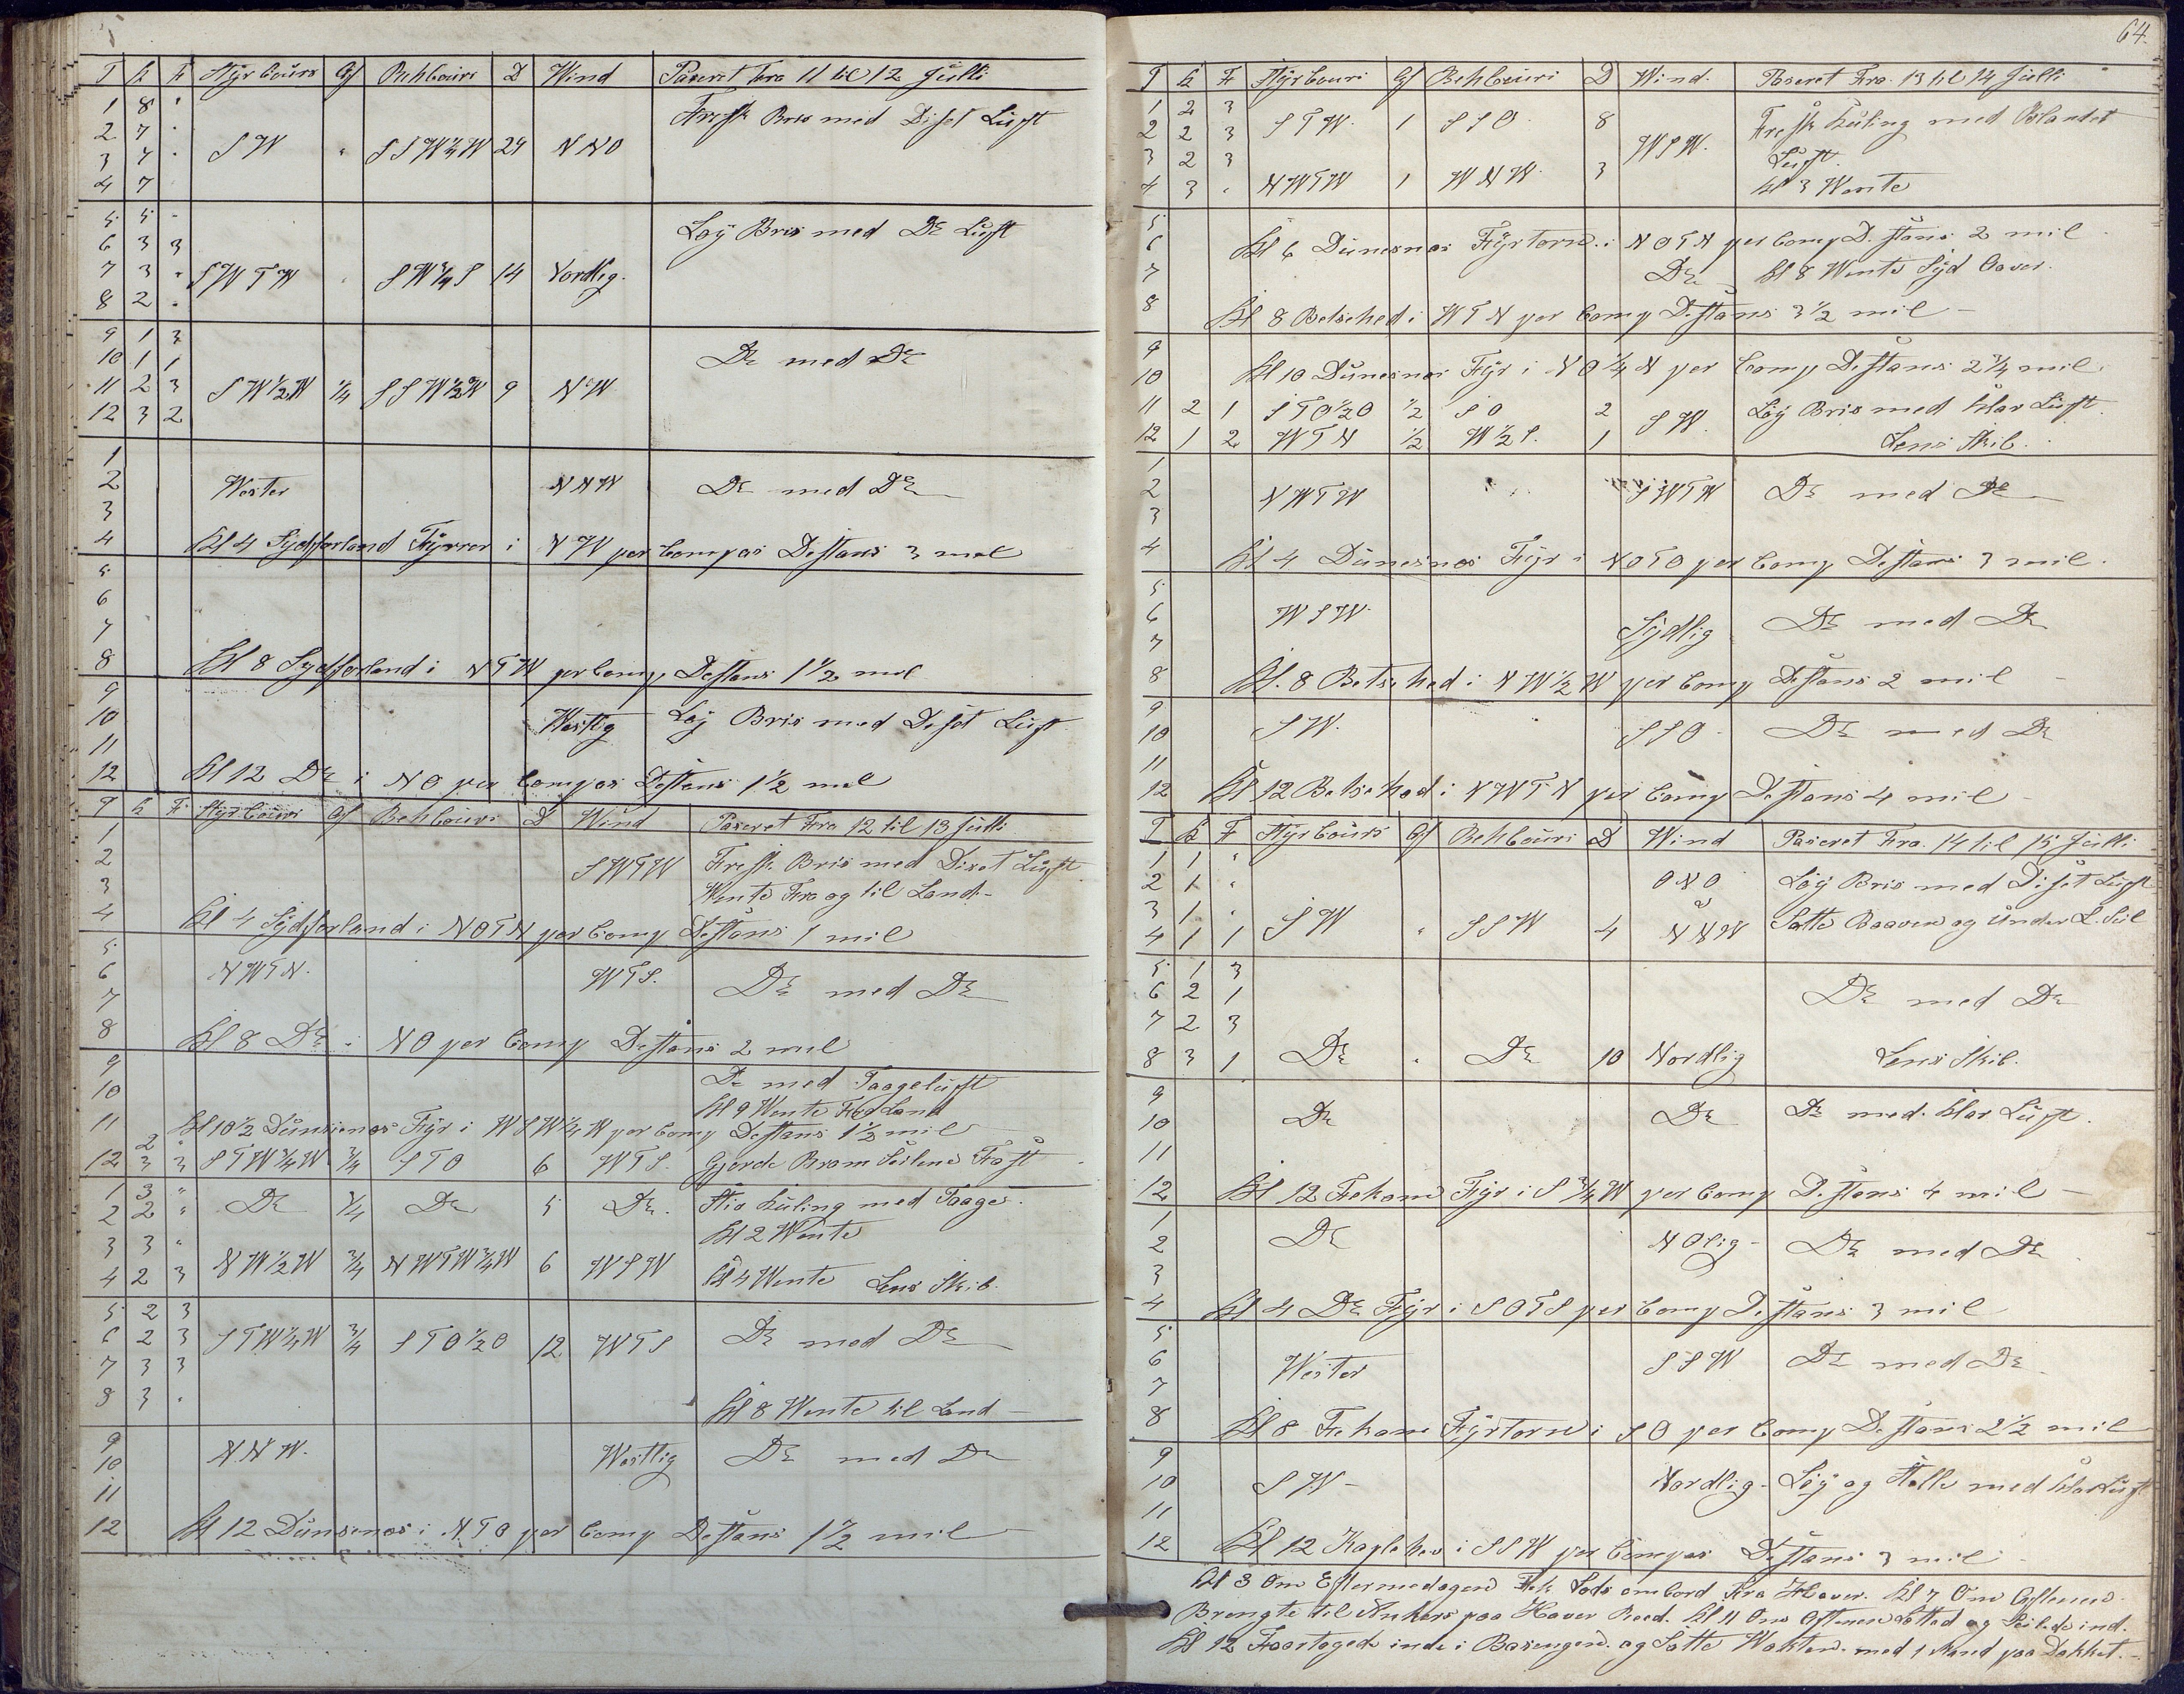 T K F Styr Cours Af Behb Cours D Wind Paseret Fra 11 til 12 Julli
1 8 " Fresk Bris med Diset Luft
2 7 "
3 7 " SW " SSW¼W 29 NNO
4 7
5 5 - Løy Bris med Do Luft
6 3 3
7 3 " SWTW " SW¾S 14 Nordlig.
8 2 "
9 1 3
10 1 1 Do med Do
11 2 3 SW½W ¼ SSW½W 9 NW
12 3 2
1
2 Wester NNW Do med Do
3
4 Kl 4 Sydforland Fyrrer i NW per Compas Distans 3 mil
5
6
7
8 Kl 8 Sydforland i NTW per Comp Distans 1½ mil
9
10 Westlig Løy Bris med Diset Luft
11
12 Kl 12 Do i NO per Compas Distans 1½ mil
T K F Styr Cours Af Behb Cours D Wind Paseret Fra 12 til 13 Julli
1
2 SWTW Fresk Bris med Diset Luft
3 Wente Fra og til Land -
4 Kl 4 Sydforland i NOTN per Comp Distans 1 mil
5
6 NWTN. WTS. Do med Do
7
8 Kl 8 Do i NO per Comp Distans 2 mil
9
10 Do med Taageluft
Kl 9 Wente Fra Land
11 Kl 10½ Dunsenæs Fyr i WSW¼W per Comp Distans 1½ mil
2 "
12 3 3 STW¾W ¾ STO 6 WTS. Gjorde Bram Seilene Fast
1 3 "
2 2 " Do ¾ Do 5 Do. Stiv Kuling med Taage.
Kl 2 Wente
3 3 "
4 2 3 NW½W ¾ NWTW¾W 6 WSW Kl 4 Wente Lens Skib.
5 2 3
6 2 3 STW¼W ¾ STO½O 12 WTS Do med Do
7 3 3
8 3 " Kl 8 Wente til Land -
9
10 NNW. Westlig Do med Do
11
12 Kl 12 Dunsenæs i NTO per Comp Distans 1½ mil
64.
T K F Styr Cours Af Beh Cours D Wind. Paseret Fra. 13 til 14 Julli
1 2 3
2 2 3 STW. 1 SSO. 8 Fresk Kuling med Blandet
3 2 3 WSW. Luft.
4 3 " NWTW 1 WNW. 3 Kl 3 Wente
5
6 Kl 6 Dunesnæs Fyrtorn i NOTN per Comp Distans 2 mil
7 Do Kl 8 Wente Syd Over.
8 Kl 8 Betsehed i WTN per Comp Distans 3½ mil -
9
10 Kl 10 Dunesnæs Fyr i NO¼N per Comp Distans 2¼ mil.
11 2 1 STO½O ½ SO 2 SW. Løy Bris med Klar Luft.
12 1 2 WTN ½ W½S. 1 Lens Skib.
1
2 NWTW SWTW Do med Do
3
4 Kl 4 Dunesnæs Fyr i NOTO per Comp Distans 3 mil.
5
6 WSW. Sydlig Do med Do
7
8 Kl. 8 Betsehed i NW½W per Comp Distans 2 mil -
9
10 SW. SSO. Do med Do
11
12 Kl 12 Betsehed i NWTN per Comp Distans 4 mil -
T K F Styr Cours Af Beh Cours D Wind Paseret Fra. 14 til 15 Julli
1 1 "
2 1 " ONO Løy Bris med Diset Luft
3 1 " SW " SSW 4 NNW Satte Baaven og Under L. Seil
4 1 1
5 1 3
6 2 1 Do med Do
7 2 3
8 3 1 Do " Do 10 Nordlig Lens Skib.
9
10 Do Do Do med. Klar Luft.
11
12 Kl 12 Fekam Fyr i S¾W per Comp Distans 4 mil -
1
2 Do NOlig - Do med Do
3
4 Kl 4 Do Fyr i SOTS per Comp Distans 3 mil
5
6 Wester SSW Do med Do
7
8 Kl 8 Fekam Fyrtorn i SO per Comp Distans 2½ mil
9
10 SW - Nordlig - Løy og Stelle med Klar Luft
11
12 Kl 12 Kaplehev i SSW per Compas Distans 3 mil
Kl 3 Om Eftermedagen Fik Lods ombord Fra Haver. Kl 7 Om Aftenen.
Brengte til Ankers paa Haver Reed. Kl 11 Om Aftenen Letted og Seilede ind.
Kl 12 Faartøyede inde i Basengen. og Satte Wakten. med 1 Mand paa Dækket.